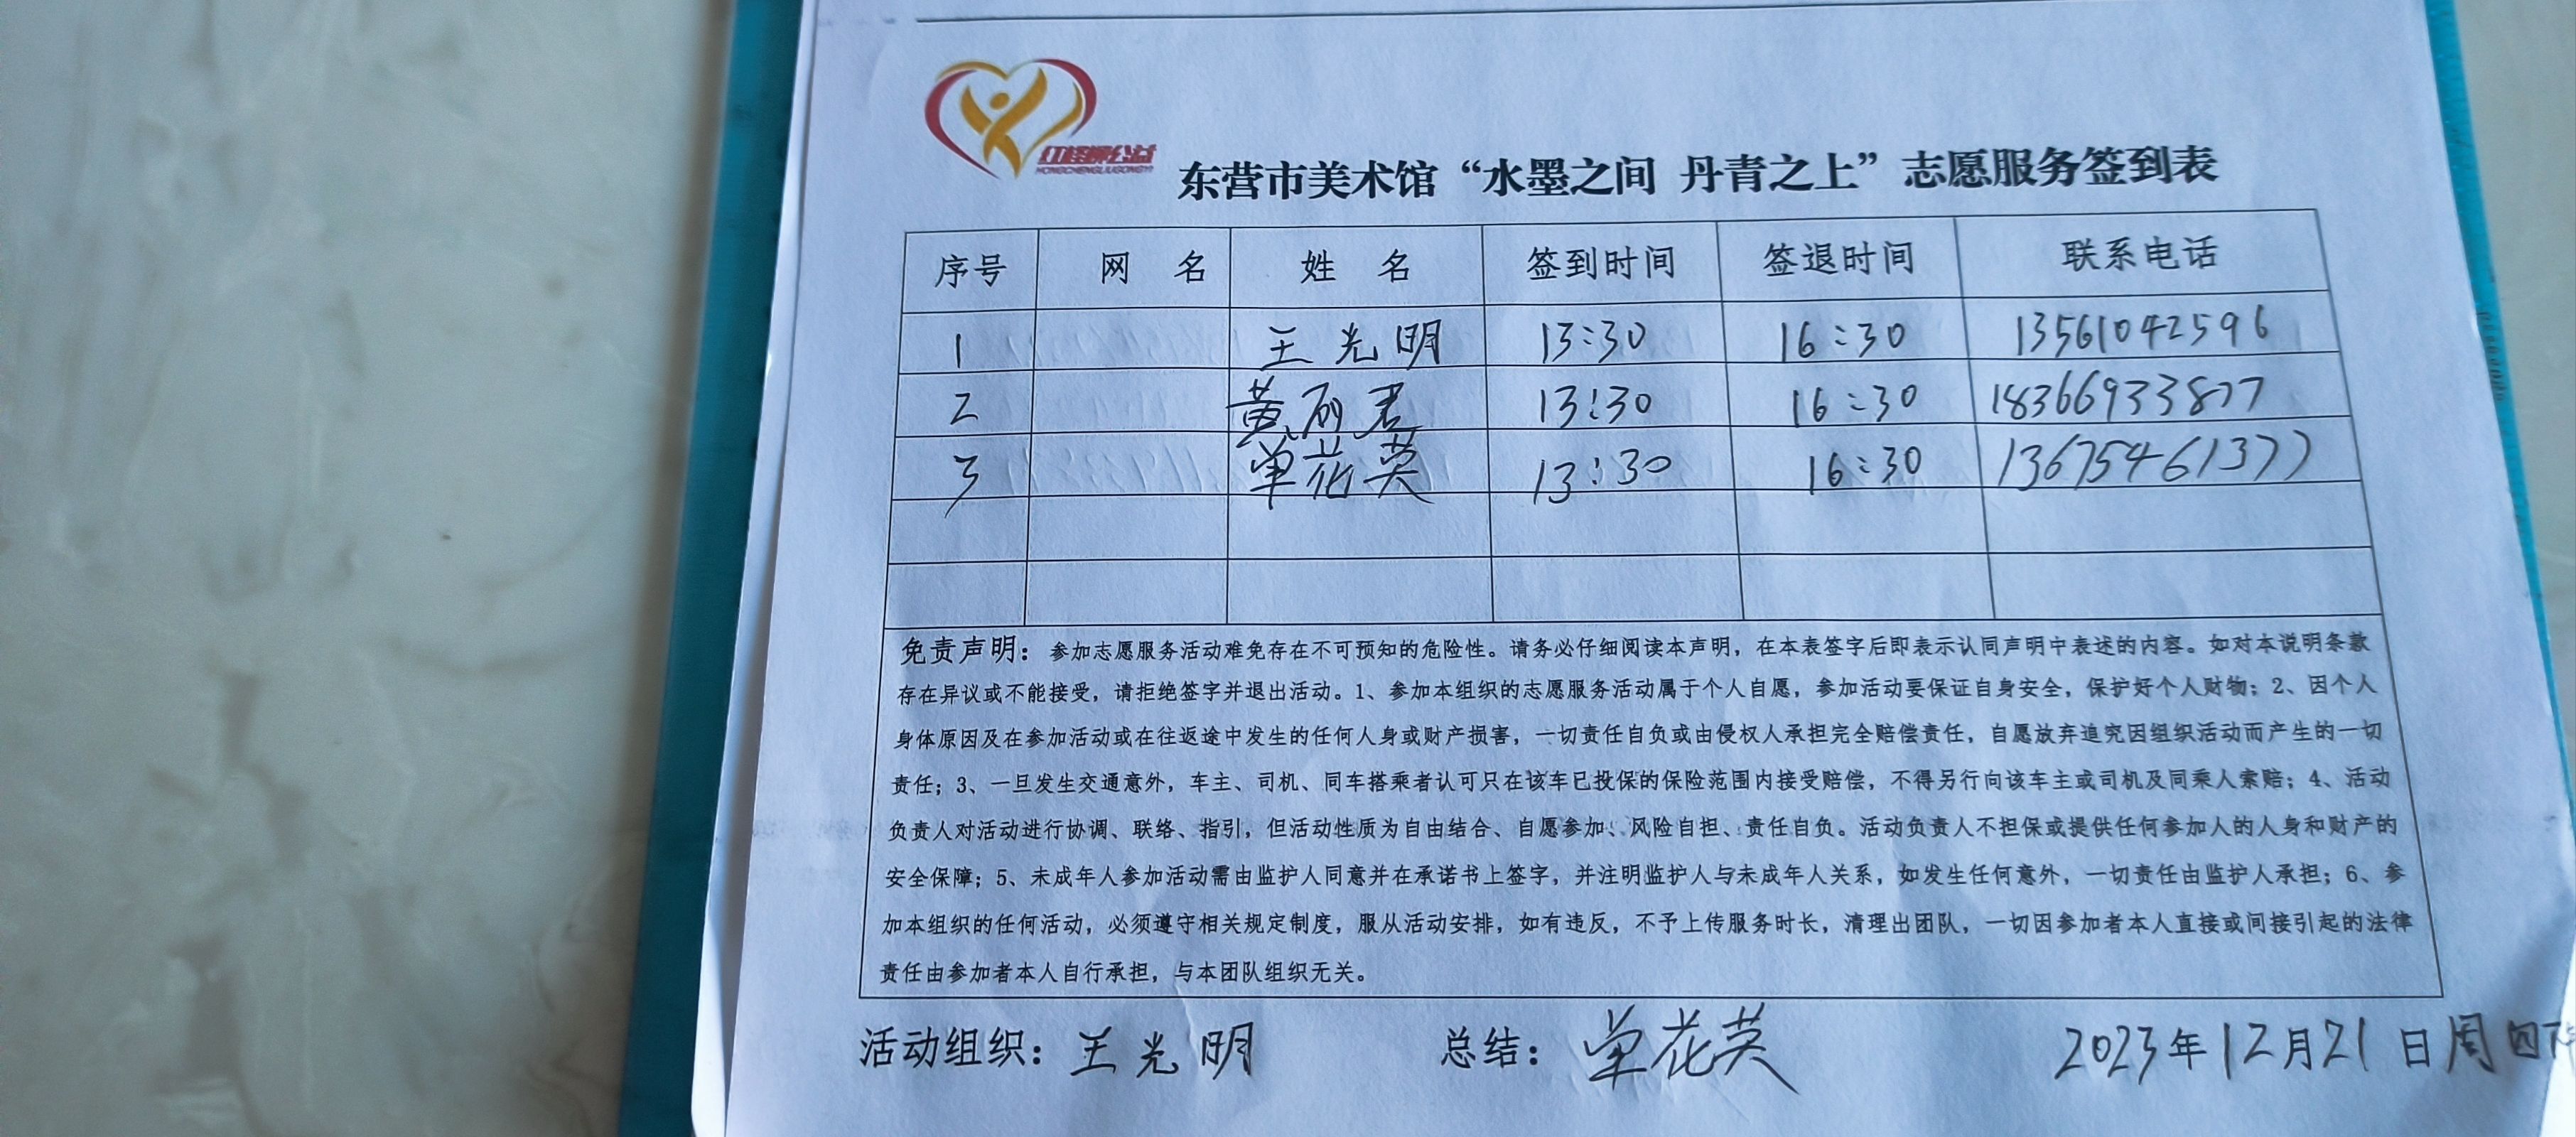 红柽柳公益
HONGCHENGLIUGONGYI
东营市美术馆“水墨之间 丹青之上”志愿服务签到表
序号 网 名 姓 名 签到时间 签退时间 联系电话
1 王光明 13:30 16:30 13561042596
2 黄丽君 13:30 16:30 18366933877
3 单花英 13:30 16:30 13675461377
免责声明：参加志愿服务活动难免存在不可预知的危险性。请务必仔细阅读本声明，在本表签字后即表示认同声明中表述的内容。如对本说明条款
存在异议或不能接受，请拒绝签字并退出活动。1、参加本组织的志愿服务活动属于个人自愿，参加活动要保证自身安全，保护好个人财物；2、因个人
身体原因及在参加活动或在往返途中发生的任何人身或财产损害，一切责任自负或由侵权人承担完全赔偿责任，自愿放弃追究因组织活动而产生的一切
责任；3、一旦发生交通意外，车主、司机、同车搭乘者认可只在该车已投保的保险范围内接受赔偿，不得另行向该车主或司机及同乘人索赔；4、活动
负责人对活动进行协调、联络、指引，但活动性质为自由结合、自愿参加、风险自担、责任自负。活动负责人不担保或提供任何参加人的人身和财产的
安全保障；5、未成年人参加活动需由监护人同意并在承诺书上签字，并注明监护人与未成年人关系，如发生任何意外，一切责任由监护人承担；6、参
加本组织的任何活动，必须遵守相关规定制度，服从活动安排，如有违反，不予上传服务时长，清理出团队，一切因参加者本人直接或间接引起的法律
责任由参加者本人自行承担，与本团队组织无关。
活动组织：王光明 总结：单花英 2023年12月21日周四下